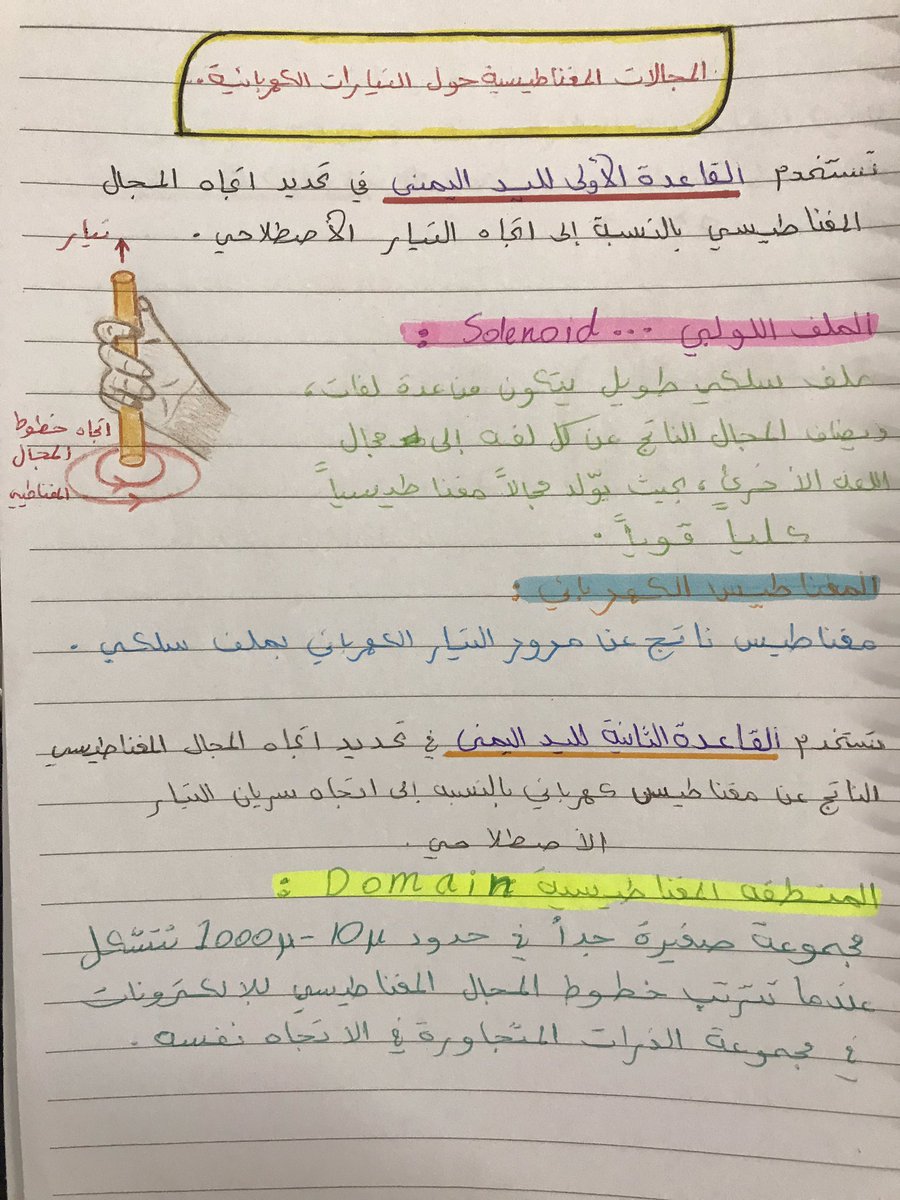 المجالات المغناطيسية حول التيارات الكهربائية.
تستخدم القاعدة الأولى لليد اليمنى في تحديد اتجاه المجال
المغناطيسي بالنسبة إلى اتجاه التيار الأصطلاحي.
تيار
اتجاه خطوط
المجال
المغناطيسي
الملف اللولبي ... Solenoid :
ملف سلكي طويل يتكون من عدة لفات،
ويضاف المجال الناتج عن كل لفه إلى مجال
اللفه الأخرى، بحيث يولّد مجالاً مغناطيسياً
كلياً قوياً.
المغناطيس الكهربائي :
مغناطيس ناتج عن مرور التيار الكهربائي بملف سلكي.
تستخدم القاعدة الثانية لليد اليمنى في تحديد اتجاه المجال المغناطيسي
الناتج عن مغناطيس كهربائي بالنسبه إلى اتجاه سريان التيار
الأصطلاحي.
المنطقه المغناطيسية Domain :
مجموعة صغيرة جداً في حدود 10µ-1000µ تتشكل
عندما تترتب خطوط المجال المغناطيسي للإلكترونات
في مجموعة الذرات المتجاورة في الاتجاه نفسه.